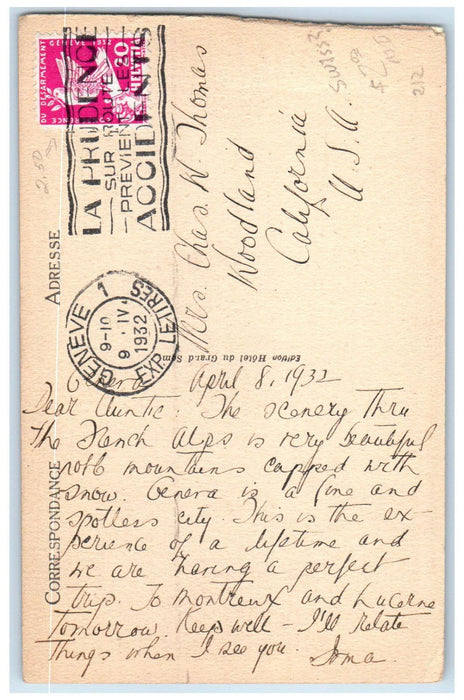 DU DESARMEMENT
GENÈVE 1932
20
HELVETIA
LA PRUDENCE
SUR ROUTE
PREVIENT LES
ACCIDENTS
GENÈVE 1
9-10
9 IV
1932
EXP. LETTRES
Suisse
212
2.50
ADRESSE
Mrs. Chas. W. Thomas
Woodland
California
U.S.A.
Edition Hôtel du Grand Som
CORRESPONDANCE
Geneva April 8, 1932
Dear Auntie: The scenery thru
the French Alps is very beautiful
mountains capped with
snow. Geneva is a fine and
spotless city. This is the ex-
perience of a lifetime and
we are having a perfect
trip. To Montreux and Lucerne
tomorrow. Keep well - I'll relate
things when I see you.